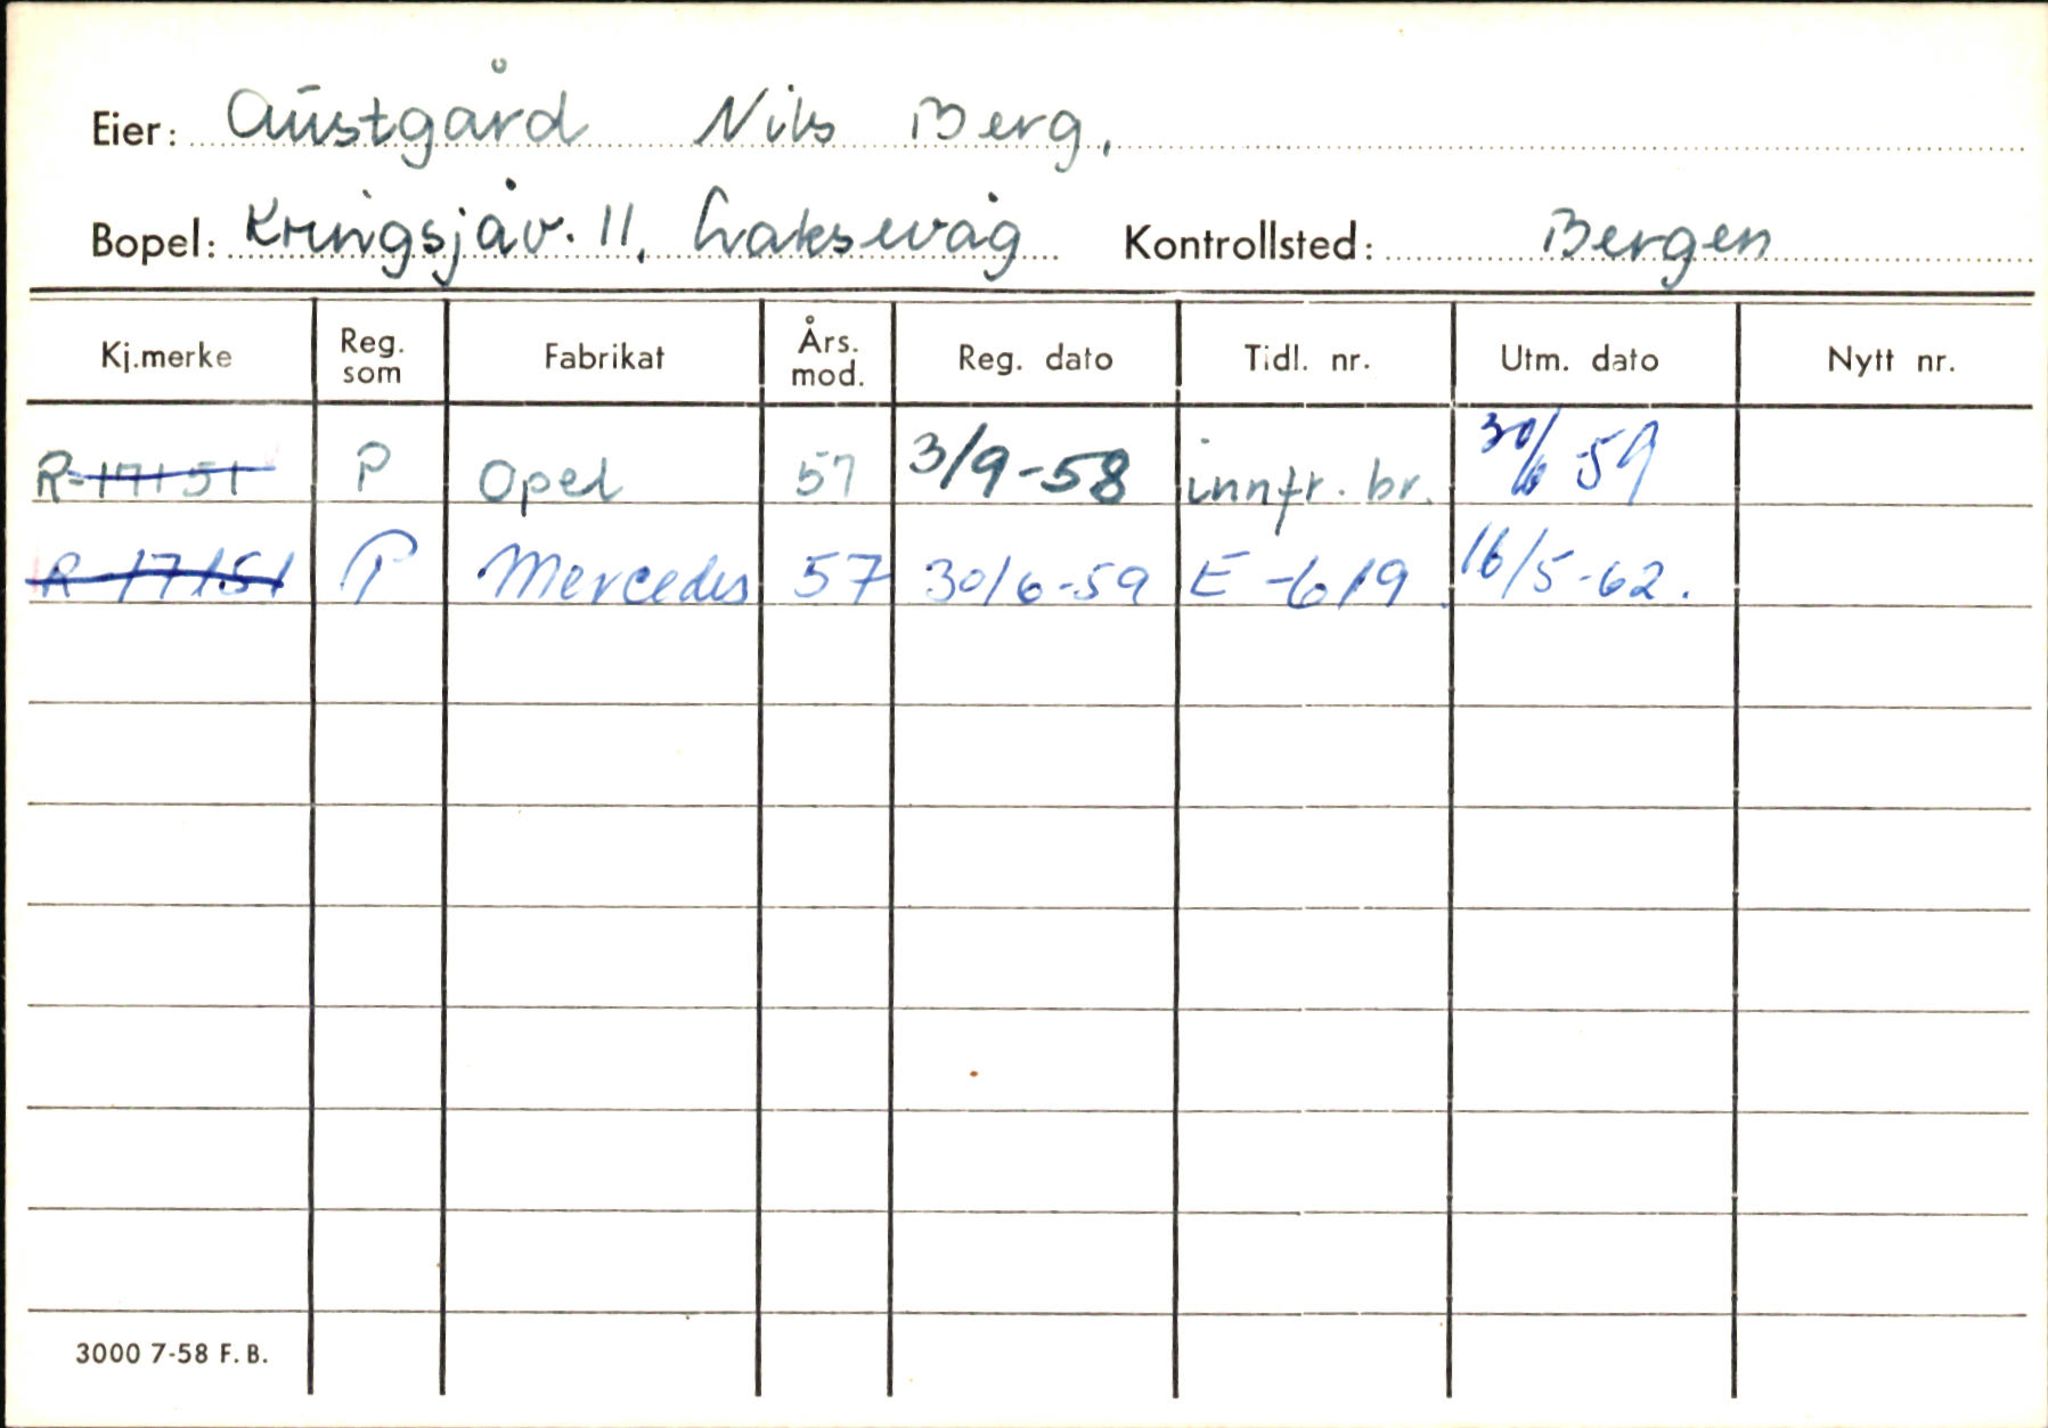 Eier: Austgård Nils Berg,
Bopel: Kringsjåv. 11, Laksevåg Kontrollsted: Bergen
Kj.merke Reg. som Fabrikat Års. mod. Reg. dato Tidl. nr. Utm. dato Nytt nr.
R-17151 P Opel 57 3/9-58 innfr. br. 30/6-59
R-17151 P Mercedes 57 30/6-59 E-619. 16/5-62.
3000 7-58 F. B.